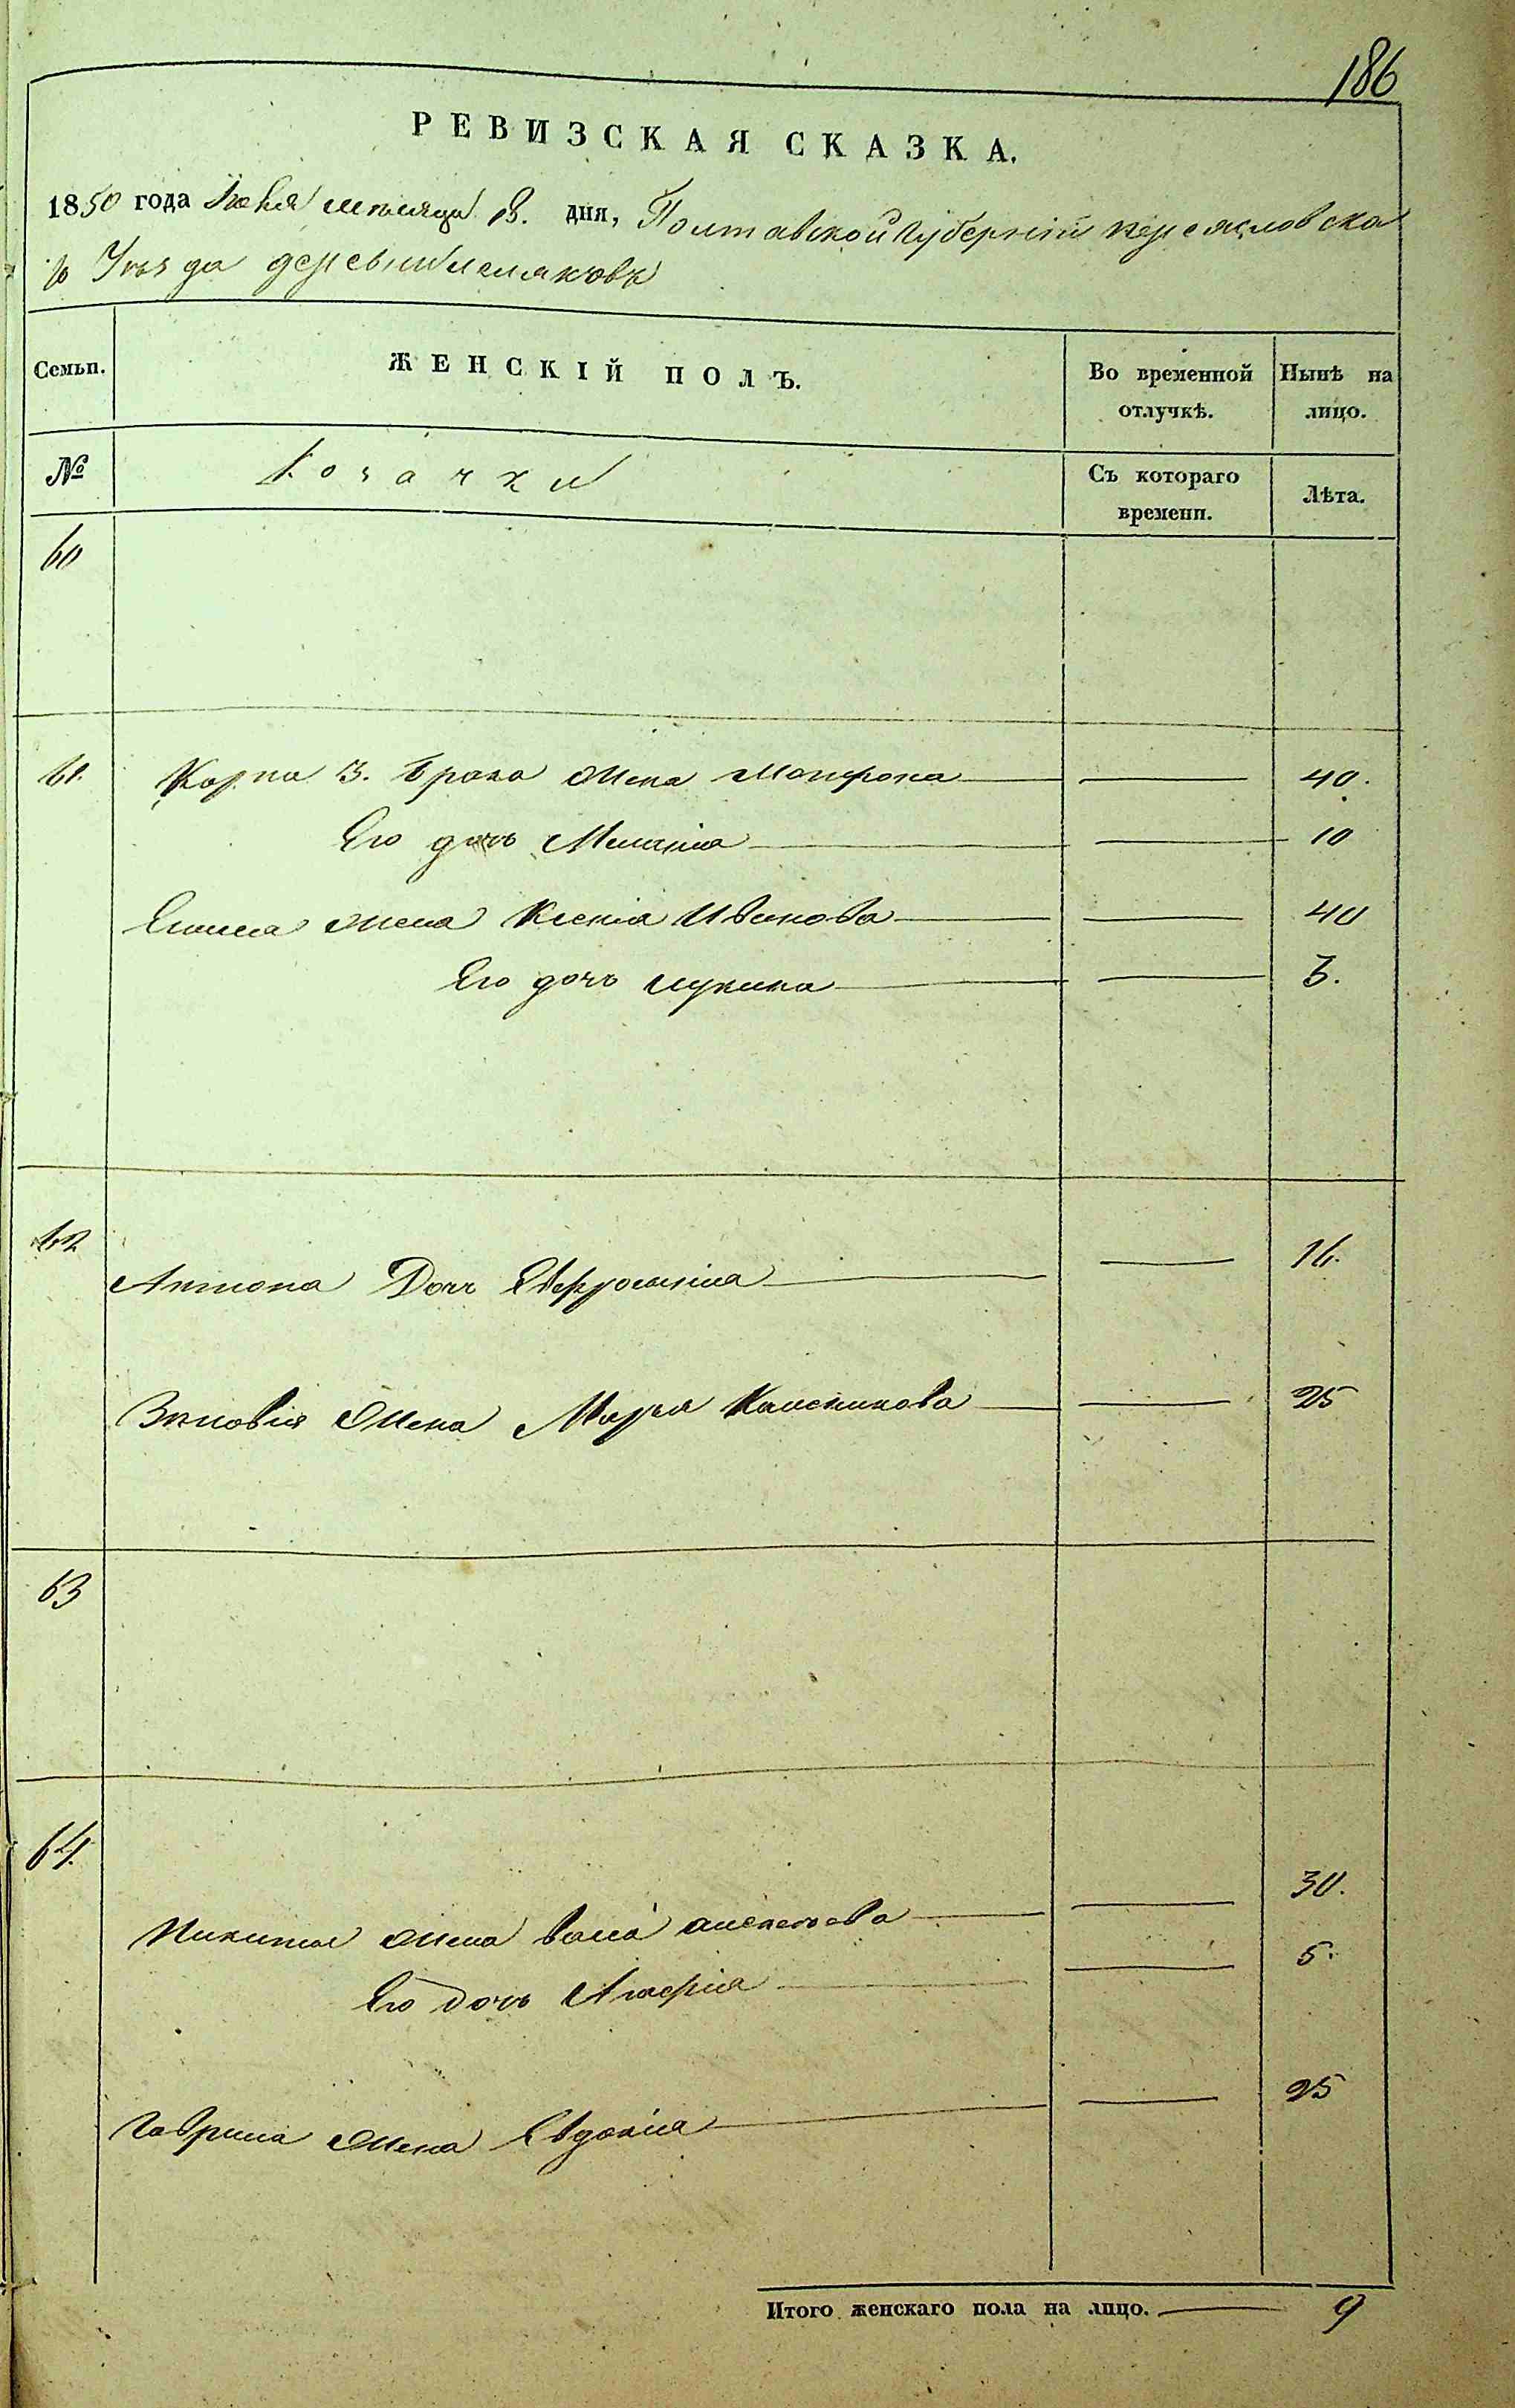 186
РЕВИЗСКАЯ СКАЗКА.
1850 года Июня месяца дня, Полтавской Губерніи переясловска
го Уезда деревни
Семьи. ЖЕНСКІЙ ПОЛЪ. Во временной отлучкѣ. Нынѣ на лицо.
№ Козачки Съ котораго времени. Лѣта.
60
61. Карпа 3. брака жена Матрона 40.
Его дочь Меланія 10
жена Ксенія Иванова 40
Его дочь 3.
62
Антона Дочь Евфросинія 16.
Зиновія жена Марья 25
63
64.
Никиты жена 30.
Его дочь 5.
Гаврила жена Евдокія 25
Итого женскаго пола на лицо. 9